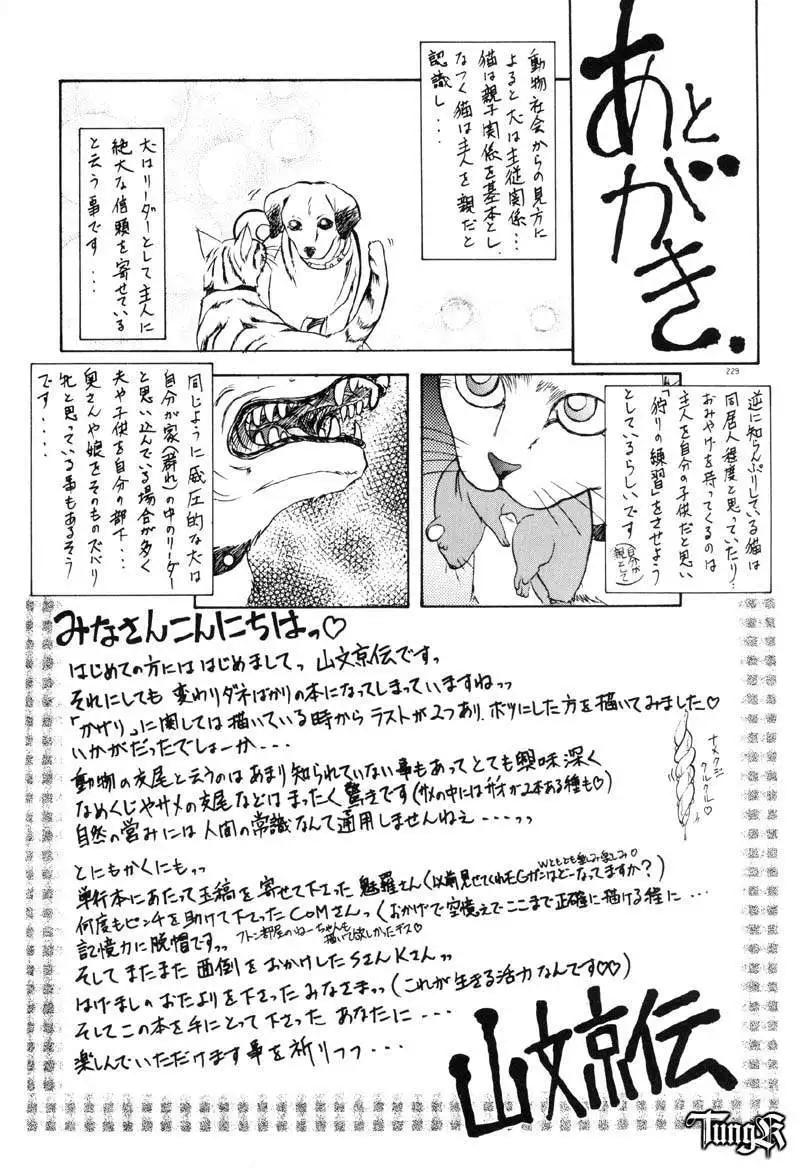 あとがき.
動物社会からの見方に
よると犬は主従関係・・・
猫は親子関係を基本とし
なつく猫は主人を親だと
認識し・・・
犬はリーダーとして主人に
絶大な信頼を寄せている
と云う事です・・・
229
逆に知らんぷりしている猫は
同居人程度と思っていたり・・
おみやげを持ってくるのは
主人を自分の子供だと思い
「狩りの練習」をさせよう
としているらしいです
(自分が
親として)
同じように威圧的な犬は
自分が家(群れ)の中のリーダー
と思い込んでいる場合が多く
夫や子供を自分の部下・・・
奥さんや娘をそのものズバリ
牝と思っている事もあるそう
です・・・・
みなさんこんにちはっ♡
はじめての方には はじめましてっ 山文京伝ですっ
それにしても 変わりダネばかりの本になってしまっていますねっっ
「かざり」に関しては描いている時から ラストが2つあり、ボツにした方を描いてみました♡
いかがだったでしょーか・・・・
動物の交尾と云うのは あまり知られていない事もあってとても興味深く
なめくじやサメの交尾などは まったく驚きです(サメの中にはサオが2本ある種も♡)
自然の営みには人間の常識なんて通用しませんねえ・・・・っっ
ナメクジ
クルクル♡
とにもかくにもっっ
単行本にあたって玉稿を寄せて下さった 魅羅さん(以前見せてくれたEGガンはどーなってますか?)
Wともとも楽しみ楽しみ♡
何度もピンチを助けて下さったCOMさんっ(おかげで空憶えでここまで正確に描ける程に・・・
記憶力に脱帽ですっっ
フトン部屋のねーちゃんも
描いて欲しかったデス♡)
そしてまたまた 面倒をおかけしたSさんKさんっっ
はげましのおたよりを下さったみなさまっっ(これが生きる活力なんです♡♡)
そしてこの本を手にとって下さった あなたに・・・
楽しんでいただけます事を祈りつつ・・・
山文京伝
TungR